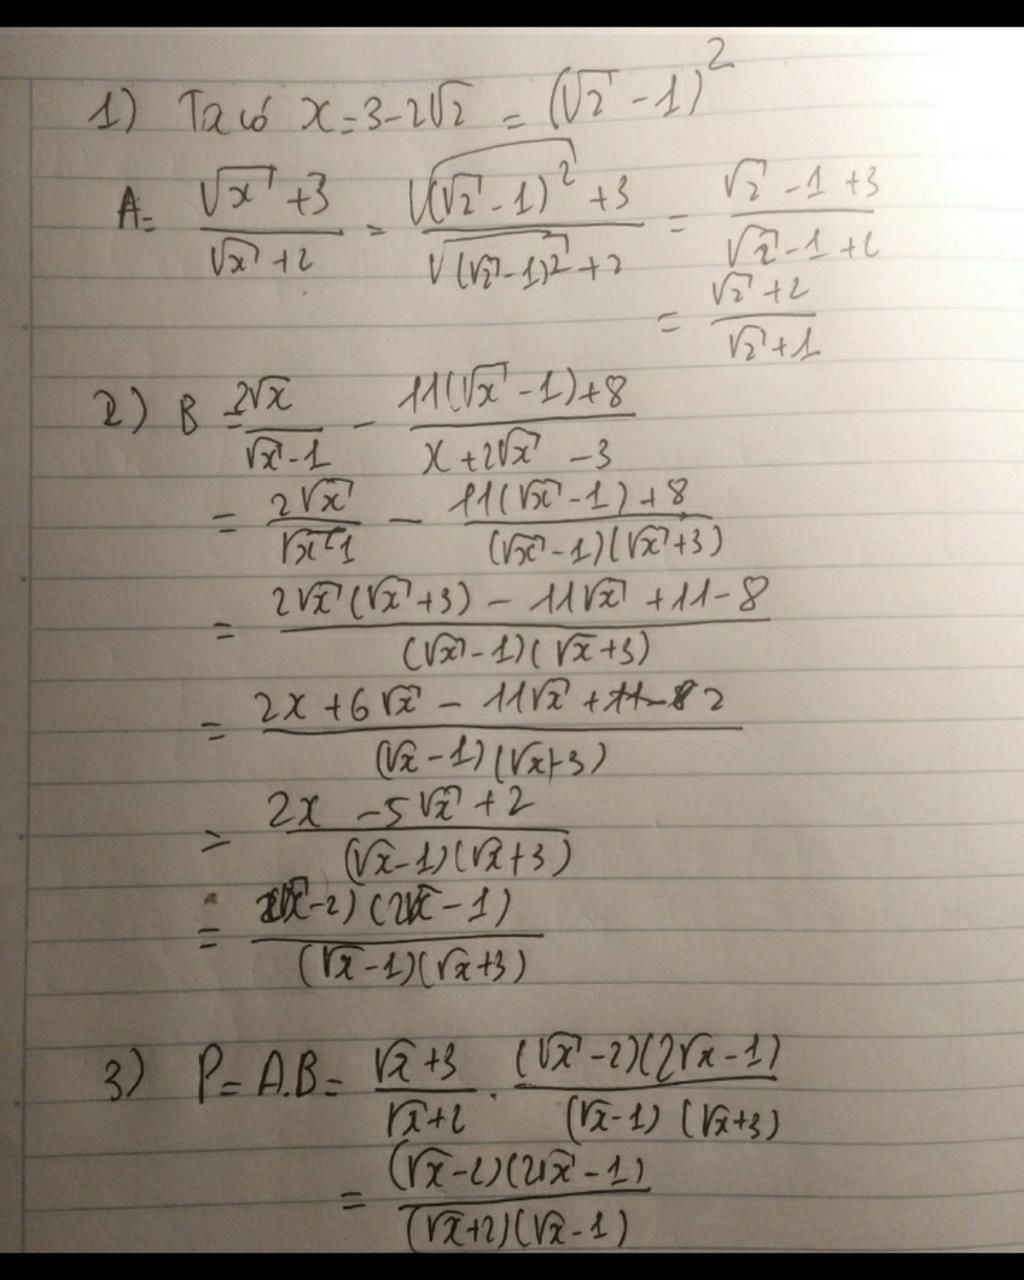 1) Ta có x = 3 - 2√2 = (√2 - 1)²
A = (√x + 3)/(√x + 2) = (√((√2 - 1)²) + 3)/(√((√2 - 1)²) + 2) = (√2 - 1 + 3)/(√2 - 1 + 2)
= (√2 + 2)/(√2 + 1)
2) B = 2√x/(√x - 1) - (11(√x - 1) + 8)/(x + 2√x - 3)
= 2√x/(√x - 1) - (11(√x - 1) + 8)/((√x - 1)(√x + 3))
= (2√x(√x + 3) - 11√x + 11 - 8)/((√x - 1)(√x + 3))
= (2x + 6√x - 11√x + 2)/((√x - 1)(√x + 3))
= (2x - 5√x + 2)/((√x - 1)(√x + 3))
= (√x - 2)(2√x - 1)/((√x - 1)(√x + 3))
3) P = A.B = (√x + 3)/(√x + 2) . (√x - 2)(2√x - 1)/((√x - 1)(√x + 3))
= (√x - 2)(2√x - 1)/((√x + 2)(√x - 1))